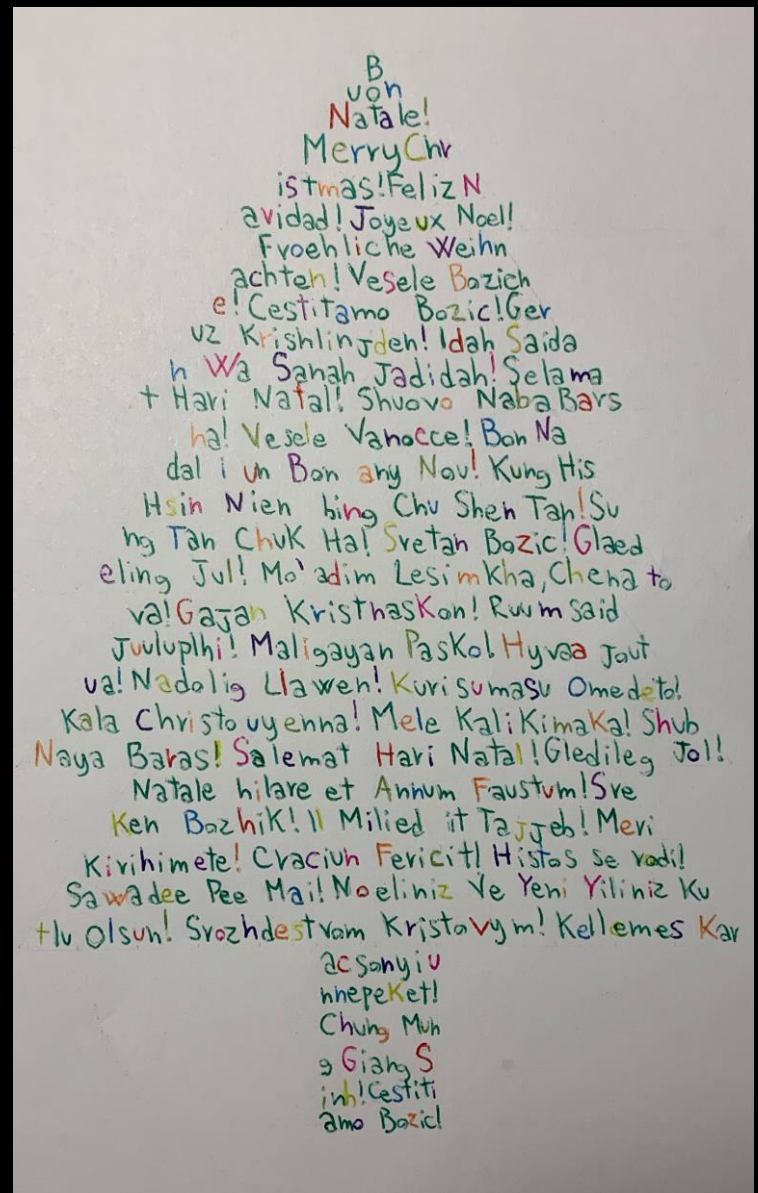 B
uon
Natale!
MerryChr
istmas!Feliz N
avidad! Joyeux Noel!
Froehliche Weihn
achten! Vesele Bozich
e! Cestitamo Bozic!Ger
uz Krishlinjden! Idah Saida
n Wa Sanah Jadidah! Selama
t Hari Natal! Shuovo Naba Bars
ha! Vesele Vanocce! Bon Na
dal i un Bon any Nou! Kung His
Hsin Nien bing Chu Shen Tan!Su
ng Tan Chuk Ha! Sretan Bozic! Glaed
eling Jul! Mo'adim Lesimkha, Chena to
va! Gajan Kristnaskon! Ruum said
Juuluplhi! Maligayan Pasko! Hyvaa Jout
ua! Nadolig Llawen! Kurisumasu Omedeto!
Kala Christouyenna! Mele KaliKimaka! Shub
Naya Baras! Salemat Hari Natal! Gledileg Jol!
Natale hilare et Annum Faustum! Sre
Ken Bozhik! Il Milied it Tajjeb! Meri
Kirihimete! Craciun Fericit! Histos se rodi!
Sawadee Pee Mai! Noeliniz Ve Yeni Yiliniz Ku
tlu Olsun! Srozhdestvom Kristovym! Kellemes Kar
acsonyi u
nnepeket!
Chung Mun
g Giang S
inh! Cestiti
amo Bozic!